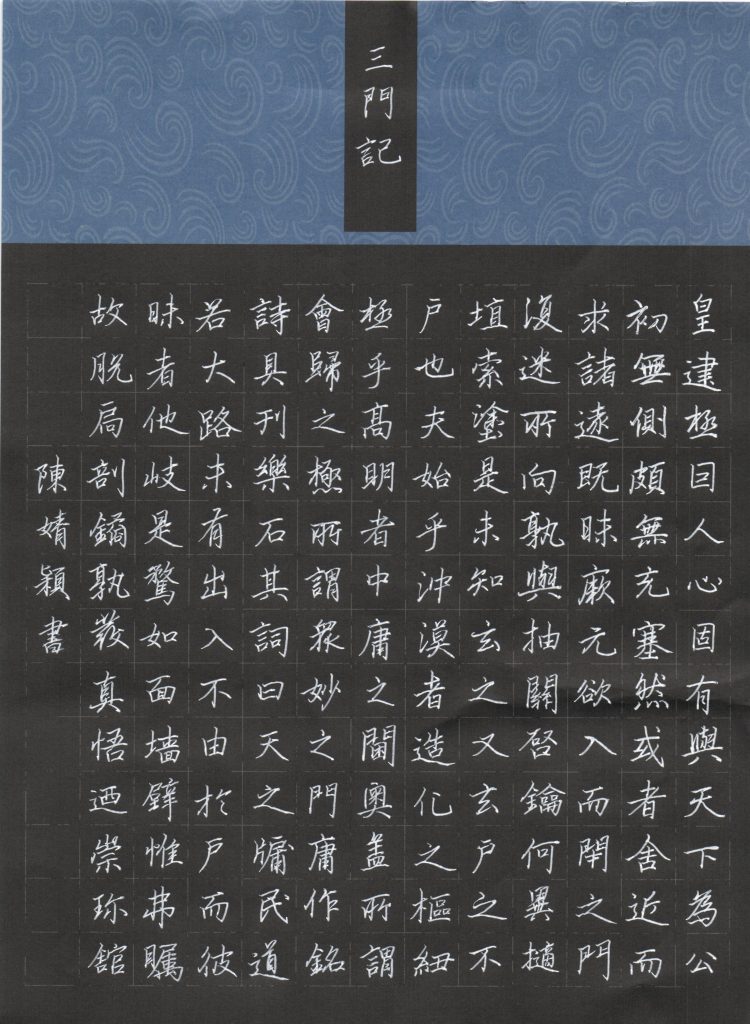 三門記
皇建極囙人心固有與天下為公
初無側頗無充塞然或者舍近而
求諸遠既昧厥元欲入而閉之門
復迷所向孰與抽關啓鑰何異擿
埴索塗是未知玄之又玄戶之不
戶也夫始乎沖漠者造化之樞紐
極乎髙明者中庸之閫奧盖所謂
會歸之極所謂眾妙之門庸作銘
詩具刊樂石其詞曰天之牖民道
若大路未有出入不由於戶而彼
昧者他岐是騖如面墻壁惟弗矚
故脫扃剖鐍孰發真悟迺崇珎舘
陳婧穎書